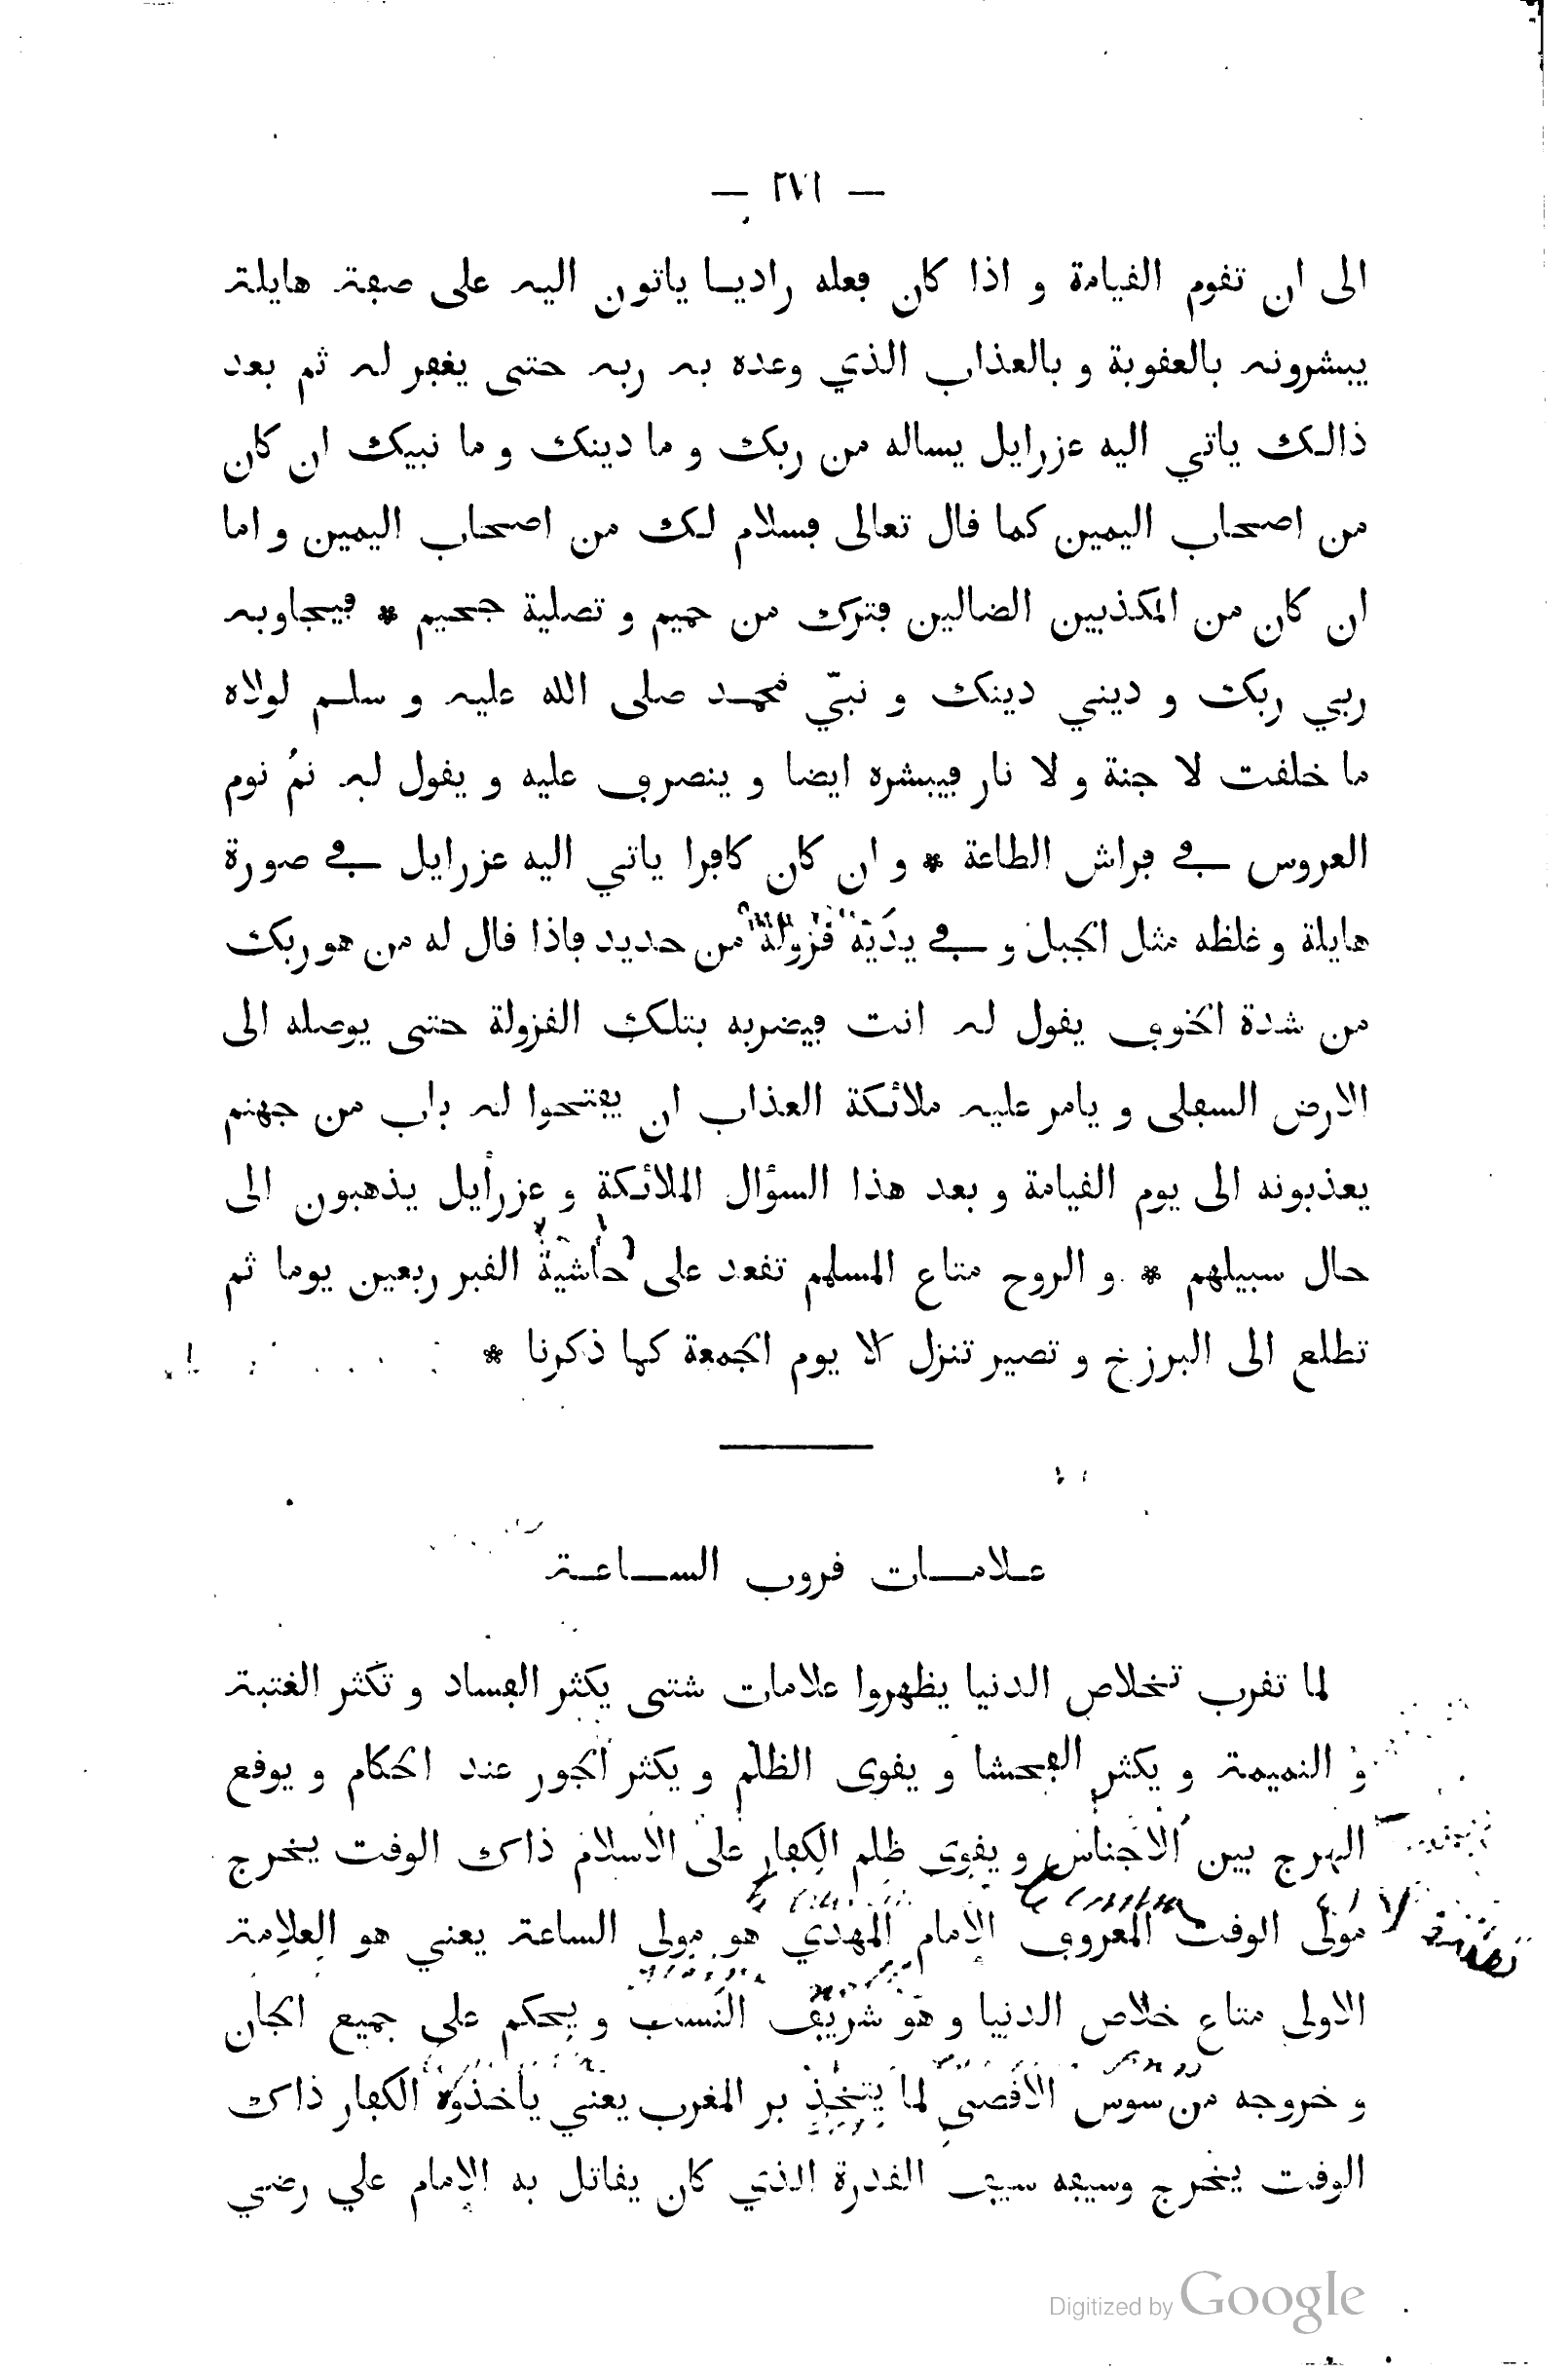 — ٢٧١ —
الى ان تقوم القيامة و اذا كان فعله راديا ياتون اليه على صفة هايلة
يبشرونه بالعقوبة و بالعذاب الذي وعده به ربه حتى يغفر له ثم بعد
ذالك ياتي اليه عزرايل يساله من ربك و ما دينك و ما نبيك ان كان
من اصحاب اليمين كما قال تعالى فسلام لك من اصحاب اليمين و اما
ان كان من المكذبين الضالين فترك من حميم و تصلية جحيم * فيجاوبه
ربي ربك و ديني دينك و نبيّ محمد صلى الله عليه و سلم لولاه
ما خلقت لا جنة و لا نار فيبشره ايضا و ينصرف عليه و يقول له نمُ نوم
العروس في فراش الطاعة * و ان كان كافرا ياتي اليه عزرايل في صورة
هايلة و غلظه مثل الجبل و في يديه قزولة من حديد فاذا قال له من هو ربك
من شدة الخوف يقول له انت فيضربه بتلك القزولة حتى يوصله الى
الارض السفلى و يامر عليه ملائكة العذاب ان يفتحوا له باب من جهنم
يعذبونه الى يوم القيامة و بعد هذا السؤال الملائكة و عزرأيل يذهبون الى
حال سبيلهم * و الروح متاع المسلم تقعد على حاشية القبر ربعين يوما ثم
تطلع الى البرزخ و تصير تنزل كلا يوم الجمعة كما ذكرنا *
علامات قروب الساعة
لما تقرب تخلاص الدنيا يظهروا علامات شتى يكثر الفساد و تكثر الغتبة
و النميمة و يكثر الفحشا و يقوى الظلم و يكثر الجور عند الحكام و يوقع
الهرج بين الاجناس و يقوى ظلم الكفار على الاسلام ذاك الوقت يخرج
مولى الوقت المعروف الامام المهدي هو مولى الساعة يعني هو العلامة
الاولى متاع خلاص الدنيا و هو شريف النسب و يحكم على جميع الجان
و خروجه من سوس الاقصى لما يتخذ بر المغرب يعني ياخذوه الكفار ذاك
الوقت يخرج وسيفه سيف القدرة الذي كان يقاتل به الامام علي رضي
Digitized by Google